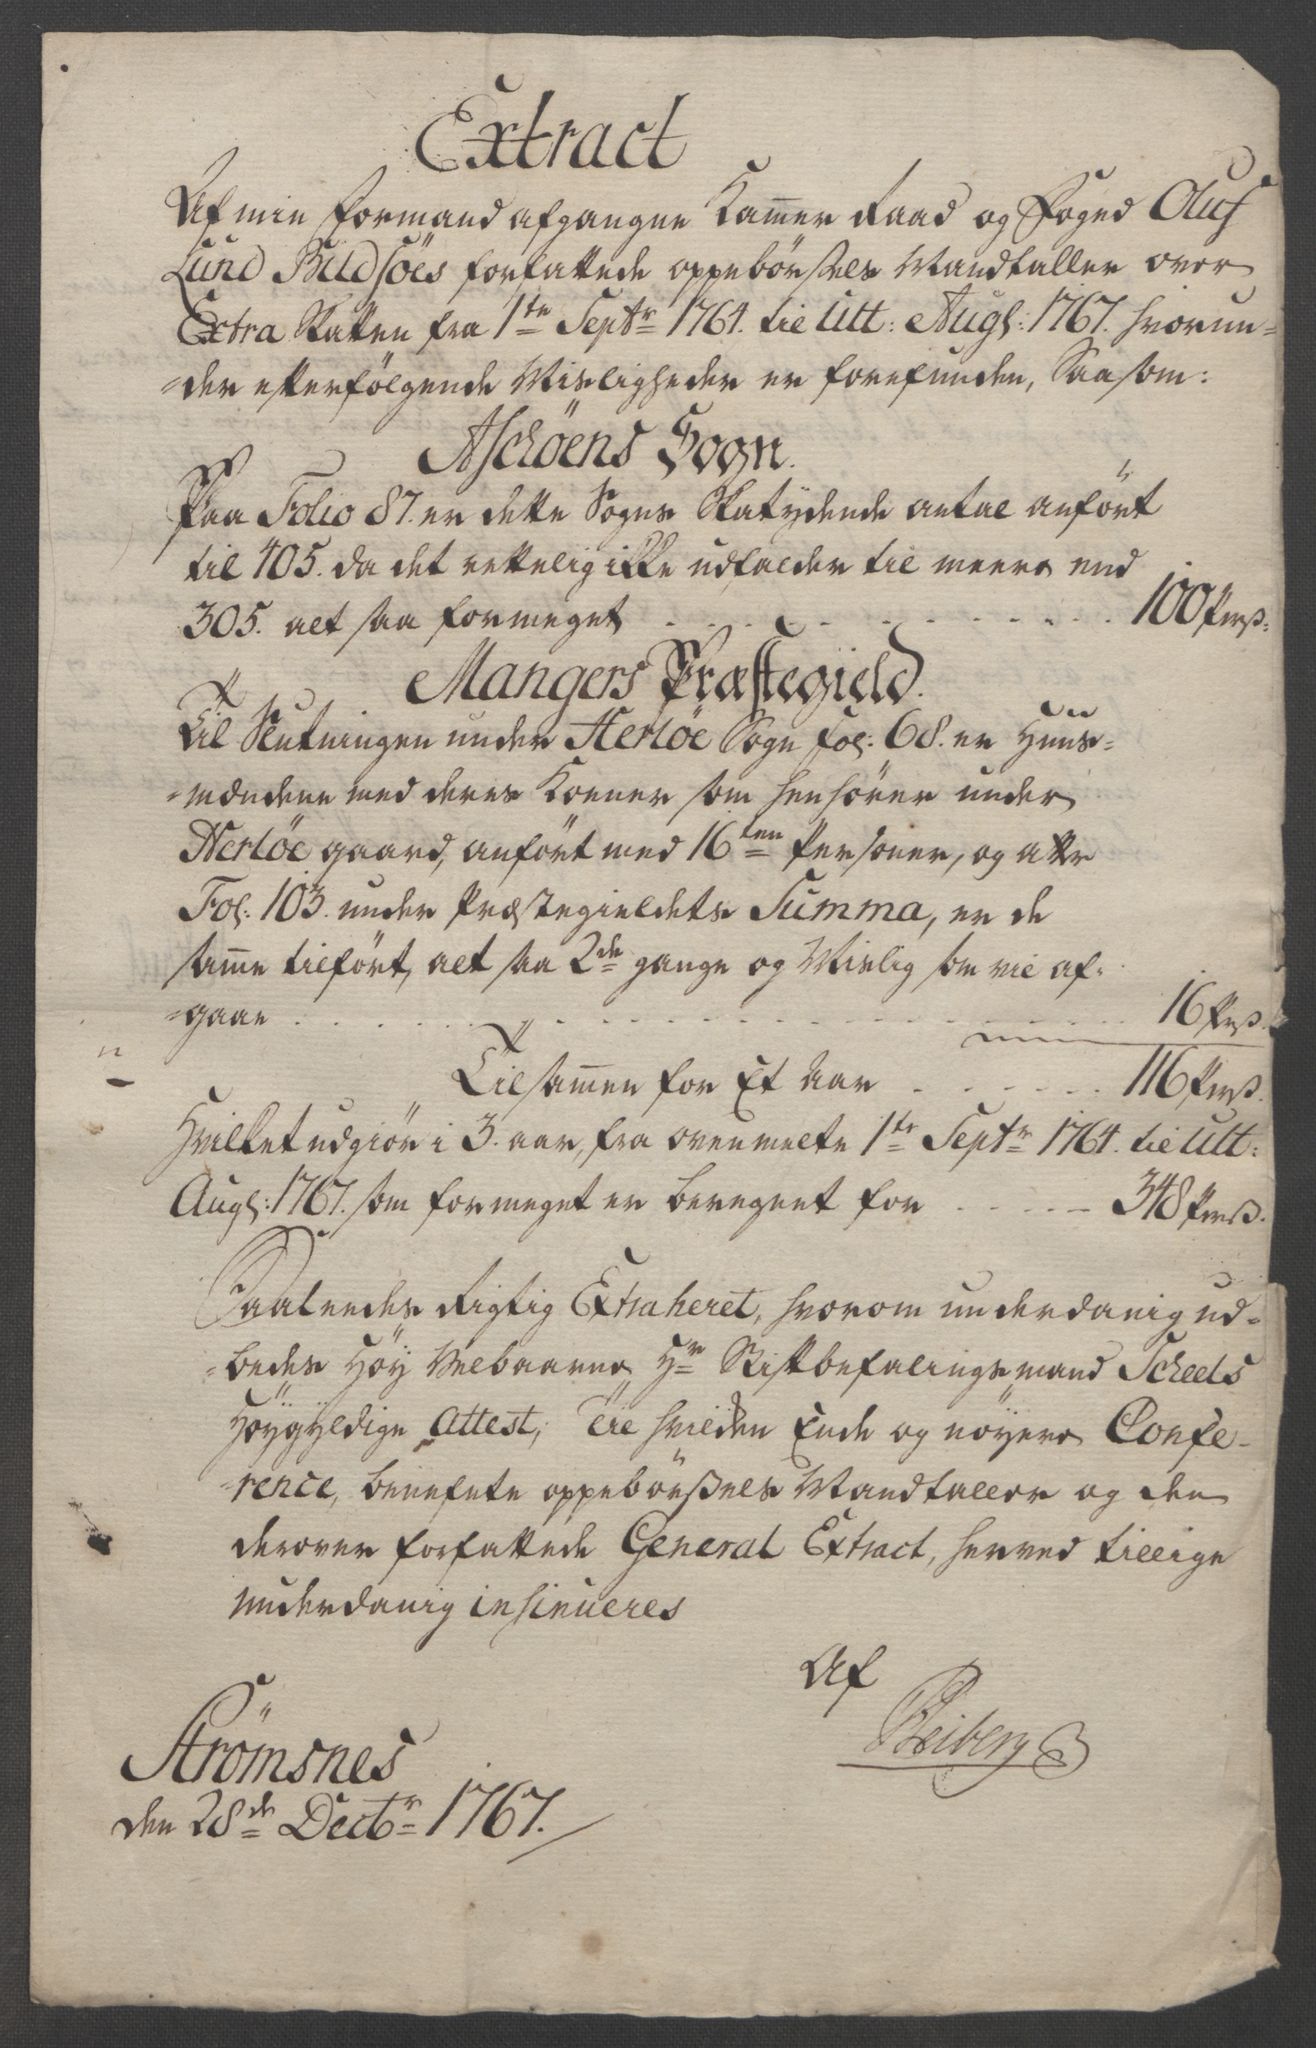 Extract
Af min formand afgangne Kammer Raad og Foged Oluf
Lund Bildsöes forfattede oppebörsels Mandtaller over
Extra Skatten fra 1te Septr 1764. til Ult: Augs: 1767. hvorun-
-der efterfølgende Misligheder er forefunden, Saasom:
Aschöens Sogn.
Paa Folio 87. er dette Sogns Skatydende antal anfört
til 405. da det rettelig ikke udfalder til meere end
305. alt saa formeget . . . . . . 100 Pers:
Mangers Præstegield.
Til Slutningen under Herlöe Sogn fol: 68. er Huus-
-mændene med deres Koner som henhörer under
Herlöe gaard, anfört med 16ten Personer, og atter
Fol: 103. under Præstegieldets Summa, er de
samme tilfört, alt saa 2de gange og Mislig som vil af-
-gaae . . . . . . 16 Pers.
Tilsammen for Et Aar . . . . . 116 Pers.
Hvilket udgiör i 3. aar, fra ovenmelte 1te Septr 1764. til Ult:
Augs: 1767. som formeget er beregnet for . . . . 348 Pers.
Saaledes Rigtig Extraheret, hvorom underdanig ud-
-bedes Höy Velbaarne Hr Stiftbefalingsmand Scheels
Höygyldige Attest; Til hvilken Ende og nöyere Confe-
-rence, benefnte oppebörsels Mandtaller og den
derover forfattede General Extract, herved tillige
underdanig insinueres
Af
Heiberg
Strömsnes
den 28de Dectr 1767.